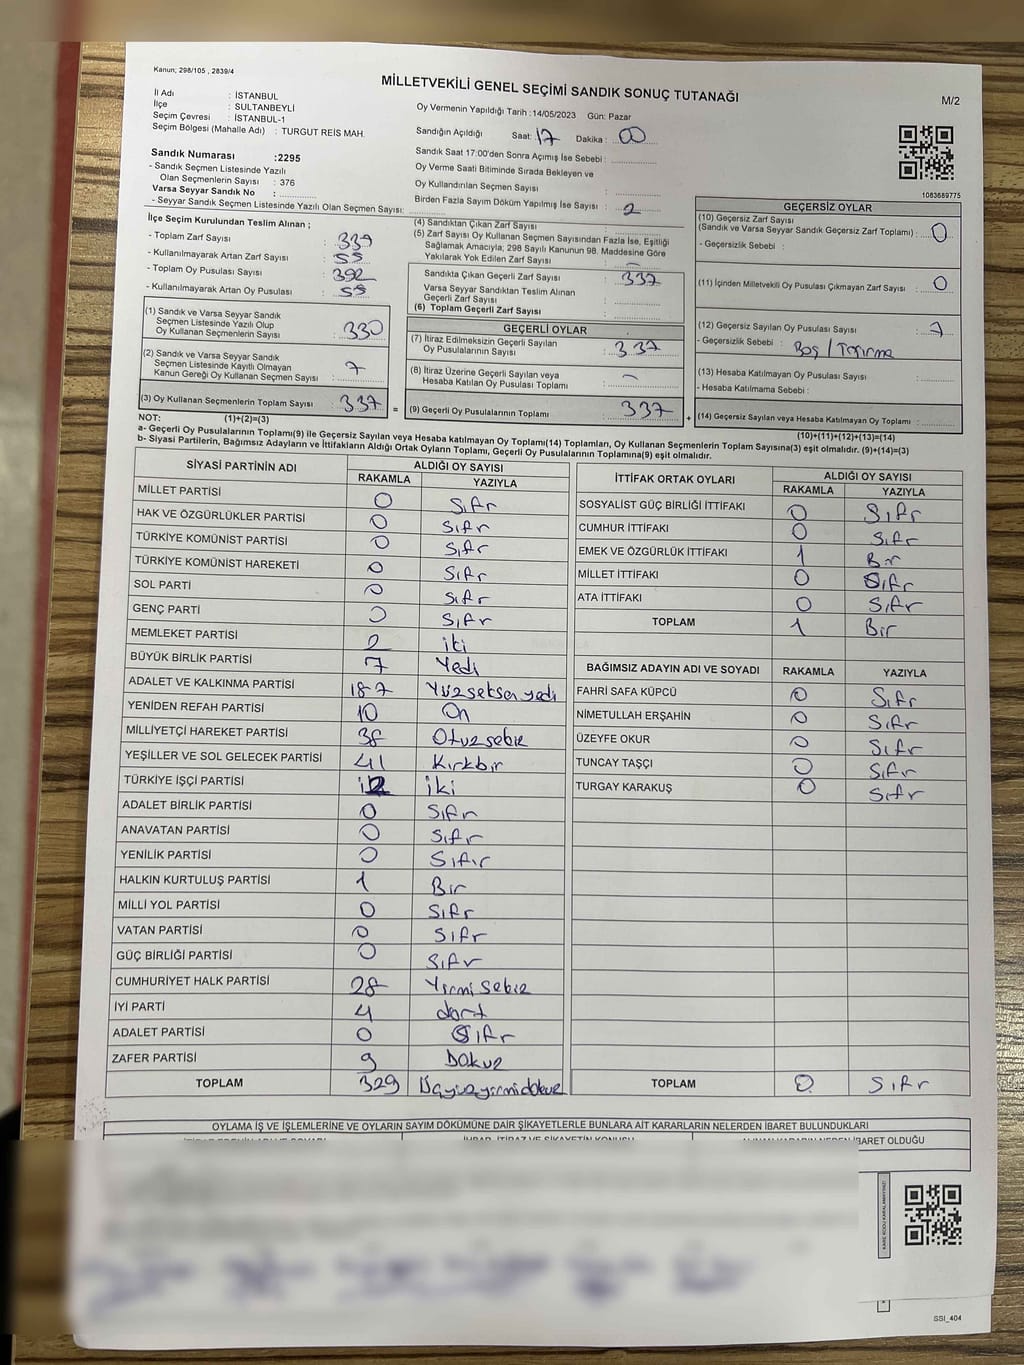 Kanun; 298/105 , 2839/4
MİLLETVEKİLİ GENEL SEÇİMİ SANDIK SONUÇ TUTANAĞI
M/2
İl Adı : İSTANBUL
İlçe : SULTANBEYLİ
Seçim Çevresi : İSTANBUL-1
Seçim Bölgesi (Mahalle Adı) : TURGUT REİS MAH.
Oy Vermenin Yapıldığı Tarih :14/05/2023 Gün: Pazar
Sandığın Açıldığı Saat: 17 Dakika : 00
Sandık Saat 17:00'den Sonra Açımış İse Sebebi :
Oy Verme Saati Bitiminde Sırada Bekleyen ve
Oy Kullandırılan Seçmen Sayısı :
Birden Fazla Sayım Döküm Yapılmış İse Sayısı : 2
Sandık Numarası :2295
- Sandık Seçmen Listesinde Yazılı
Olan Seçmenlerin Sayısı : 376
Varsa Seyyar Sandık No :
- Seyyar Sandık Seçmen Listesinde Yazılı Olan Seçmen Sayısı:
1083689775
İlçe Seçim Kurulundan Teslim Alınan ;
- Toplam Zarf Sayısı : 339
- Kullanılmayarak Artan Zarf Sayısı : 55
- Toplam Oy Pusulası Sayısı : 392
- Kullanılmayarak Artan Oy Pusulası : 55
(1) Sandık ve Varsa Seyyar Sandık
Seçmen Listesinde Yazılı Olup
Oy Kullanan Seçmenlerin Sayısı : 330
(2) Sandık ve Varsa Seyyar Sandık
Seçmen Listesinde Kayıtlı Olmayan
Kanun Gereği Oy Kullanan Seçmen Sayısı : 7
(3) Oy Kullanan Seçmenlerin Toplam Sayısı : 337
(4) Sandıktan Çıkan Zarf Sayısı :
(5) Zarf Sayısı Oy Kullanan Seçmen Sayısından Fazla İse, Eşitliği
Sağlamak Amacıyla; 298 Sayılı Kanunun 98. Maddesine Göre
Yakılarak Yok Edilen Zarf Sayısı : –
Sandıkta Çıkan Geçerli Zarf Sayısı : 337
Varsa Seyyar Sandıktan Teslim Alınan
Geçerli Zarf Sayısı :
(6) Toplam Geçerli Zarf Sayısı :
GEÇERLİ OYLAR
(7) İtiraz Edilmeksizin Geçerli Sayılan
Oy Pusulalarının Sayısı : 337
(8) İtiraz Üzerine Geçerli Sayılan veya
Hesaba Katılan Oy Pusulası Toplamı : –
= (9) Geçerli Oy Pusulalarının Toplamı : 337
GEÇERSİZ OYLAR
(10) Geçersiz Zarf Sayısı
(Sandık ve Varsa Seyyar Sandık Geçersiz Zarf Toplamı) : 0
- Geçersizlik Sebebi :
(11) İçinden Milletvekili Oy Pusulası Çıkmayan Zarf Sayısı : 0
(12) Geçersiz Sayılan Oy Pusulası Sayısı : 7
- Geçersizlik Sebebi : Boş /
(13) Hesaba Katılmayan Oy Pusulası Sayısı :
- Hesaba Katılmama Sebebi :
+ (14) Geçersiz Sayılan veya Hesaba Katılmayan Oy Toplamı :
NOT: (1)+(2)=(3)
(10)+(11)+(12)+(13)=(14)
a- Geçerli Oy Pusulalarının Toplamı(9) ile Geçersiz Sayılan veya Hesaba katılmayan Oy Toplamı(14) Toplamları, Oy Kullanan Seçmenlerin Toplam Sayısına(3) eşit olmalıdır. (9)+(14)=(3)
b- Siyasi Partilerin, Bağımsız Adayların ve İttifakların Aldığı Ortak Oyların Toplamı, Geçerli Oy Pusulalarının Toplamına(9) eşit olmalıdır.
SİYASİ PARTİNİN ADI ALDIĞI OY SAYISI
RAKAMLA YAZIYLA
MİLLET PARTİSİ 0 Sıfr
HAK VE ÖZGÜRLÜKLER PARTİSİ 0 Sıfr
TÜRKİYE KOMÜNİST PARTİSİ 0 Sıfr
TÜRKİYE KOMÜNİST HAREKETİ 0 Sıfr
SOL PARTİ 0 Sıfr
GENÇ PARTİ 0 Sıfr
MEMLEKET PARTİSİ 2 iki
BÜYÜK BİRLİK PARTİSİ 7 Yedi
ADALET VE KALKINMA PARTİSİ 187 Yüzseksenyedi
YENİDEN REFAH PARTİSİ 10 On
MİLLİYETÇİ HAREKET PARTİSİ 38 Otuzsekiz
YEŞİLLER VE SOL GELECEK PARTİSİ 41 Kırkbir
TÜRKİYE İŞÇİ PARTİSİ 2 iki
ADALET BİRLİK PARTİSİ 0 Sıfır
ANAVATAN PARTİSİ 0 Sıfr
YENİLİK PARTİSİ 0 Sıfır
HALKIN KURTULUŞ PARTİSİ 1 Bir
MİLLİ YOL PARTİSİ 0 Sıfr
VATAN PARTİSİ 0 Sıfr
GÜÇ BİRLİĞİ PARTİSİ 0 Sıfr
CUMHURİYET HALK PARTİSİ 28 Yirmi sekiz
İYİ PARTİ 4 dört
ADALET PARTİSİ 0 Sıfr
ZAFER PARTİSİ 9 Dokuz
TOPLAM 329 Üçyüzyirmidokuz
İTTİFAK ORTAK OYLARI ALDIĞI OY SAYISI
RAKAMLA YAZIYLA
SOSYALİST GÜÇ BİRLİĞİ İTTİFAKI 0 Sıfr
CUMHUR İTTİFAKI 0 Sıfr
EMEK VE ÖZGÜRLÜK İTTİFAKI 1 Bir
MİLLET İTTİFAKI 0 Sıfr
ATA İTTİFAKI 0 Sıfr
TOPLAM 1 Bir
BAĞIMSIZ ADAYIN ADI VE SOYADI RAKAMLA YAZIYLA
FAHRİ SAFA KÜPCÜ 0 Sıfr
NİMETULLAH ERŞAHİN 0 Sıfr
ÜZEYFE OKUR 0 Sıfr
TUNCAY TAŞÇI 0 Sıfr
TURGAY KARAKUŞ 0 Sıfr
TOPLAM 0 Sıfr
OYLAMA İŞ VE İŞLEMLERİNE VE OYLARIN SAYIM DÖKÜMÜNE DAİR ŞİKAYETLERLE BUNLARA AİT KARARLARIN NELERDEN İBARET BULUNDUKLARI
İBARET OLDUĞU
KARE KODU KARALAMAYINIZ!
SSI_404